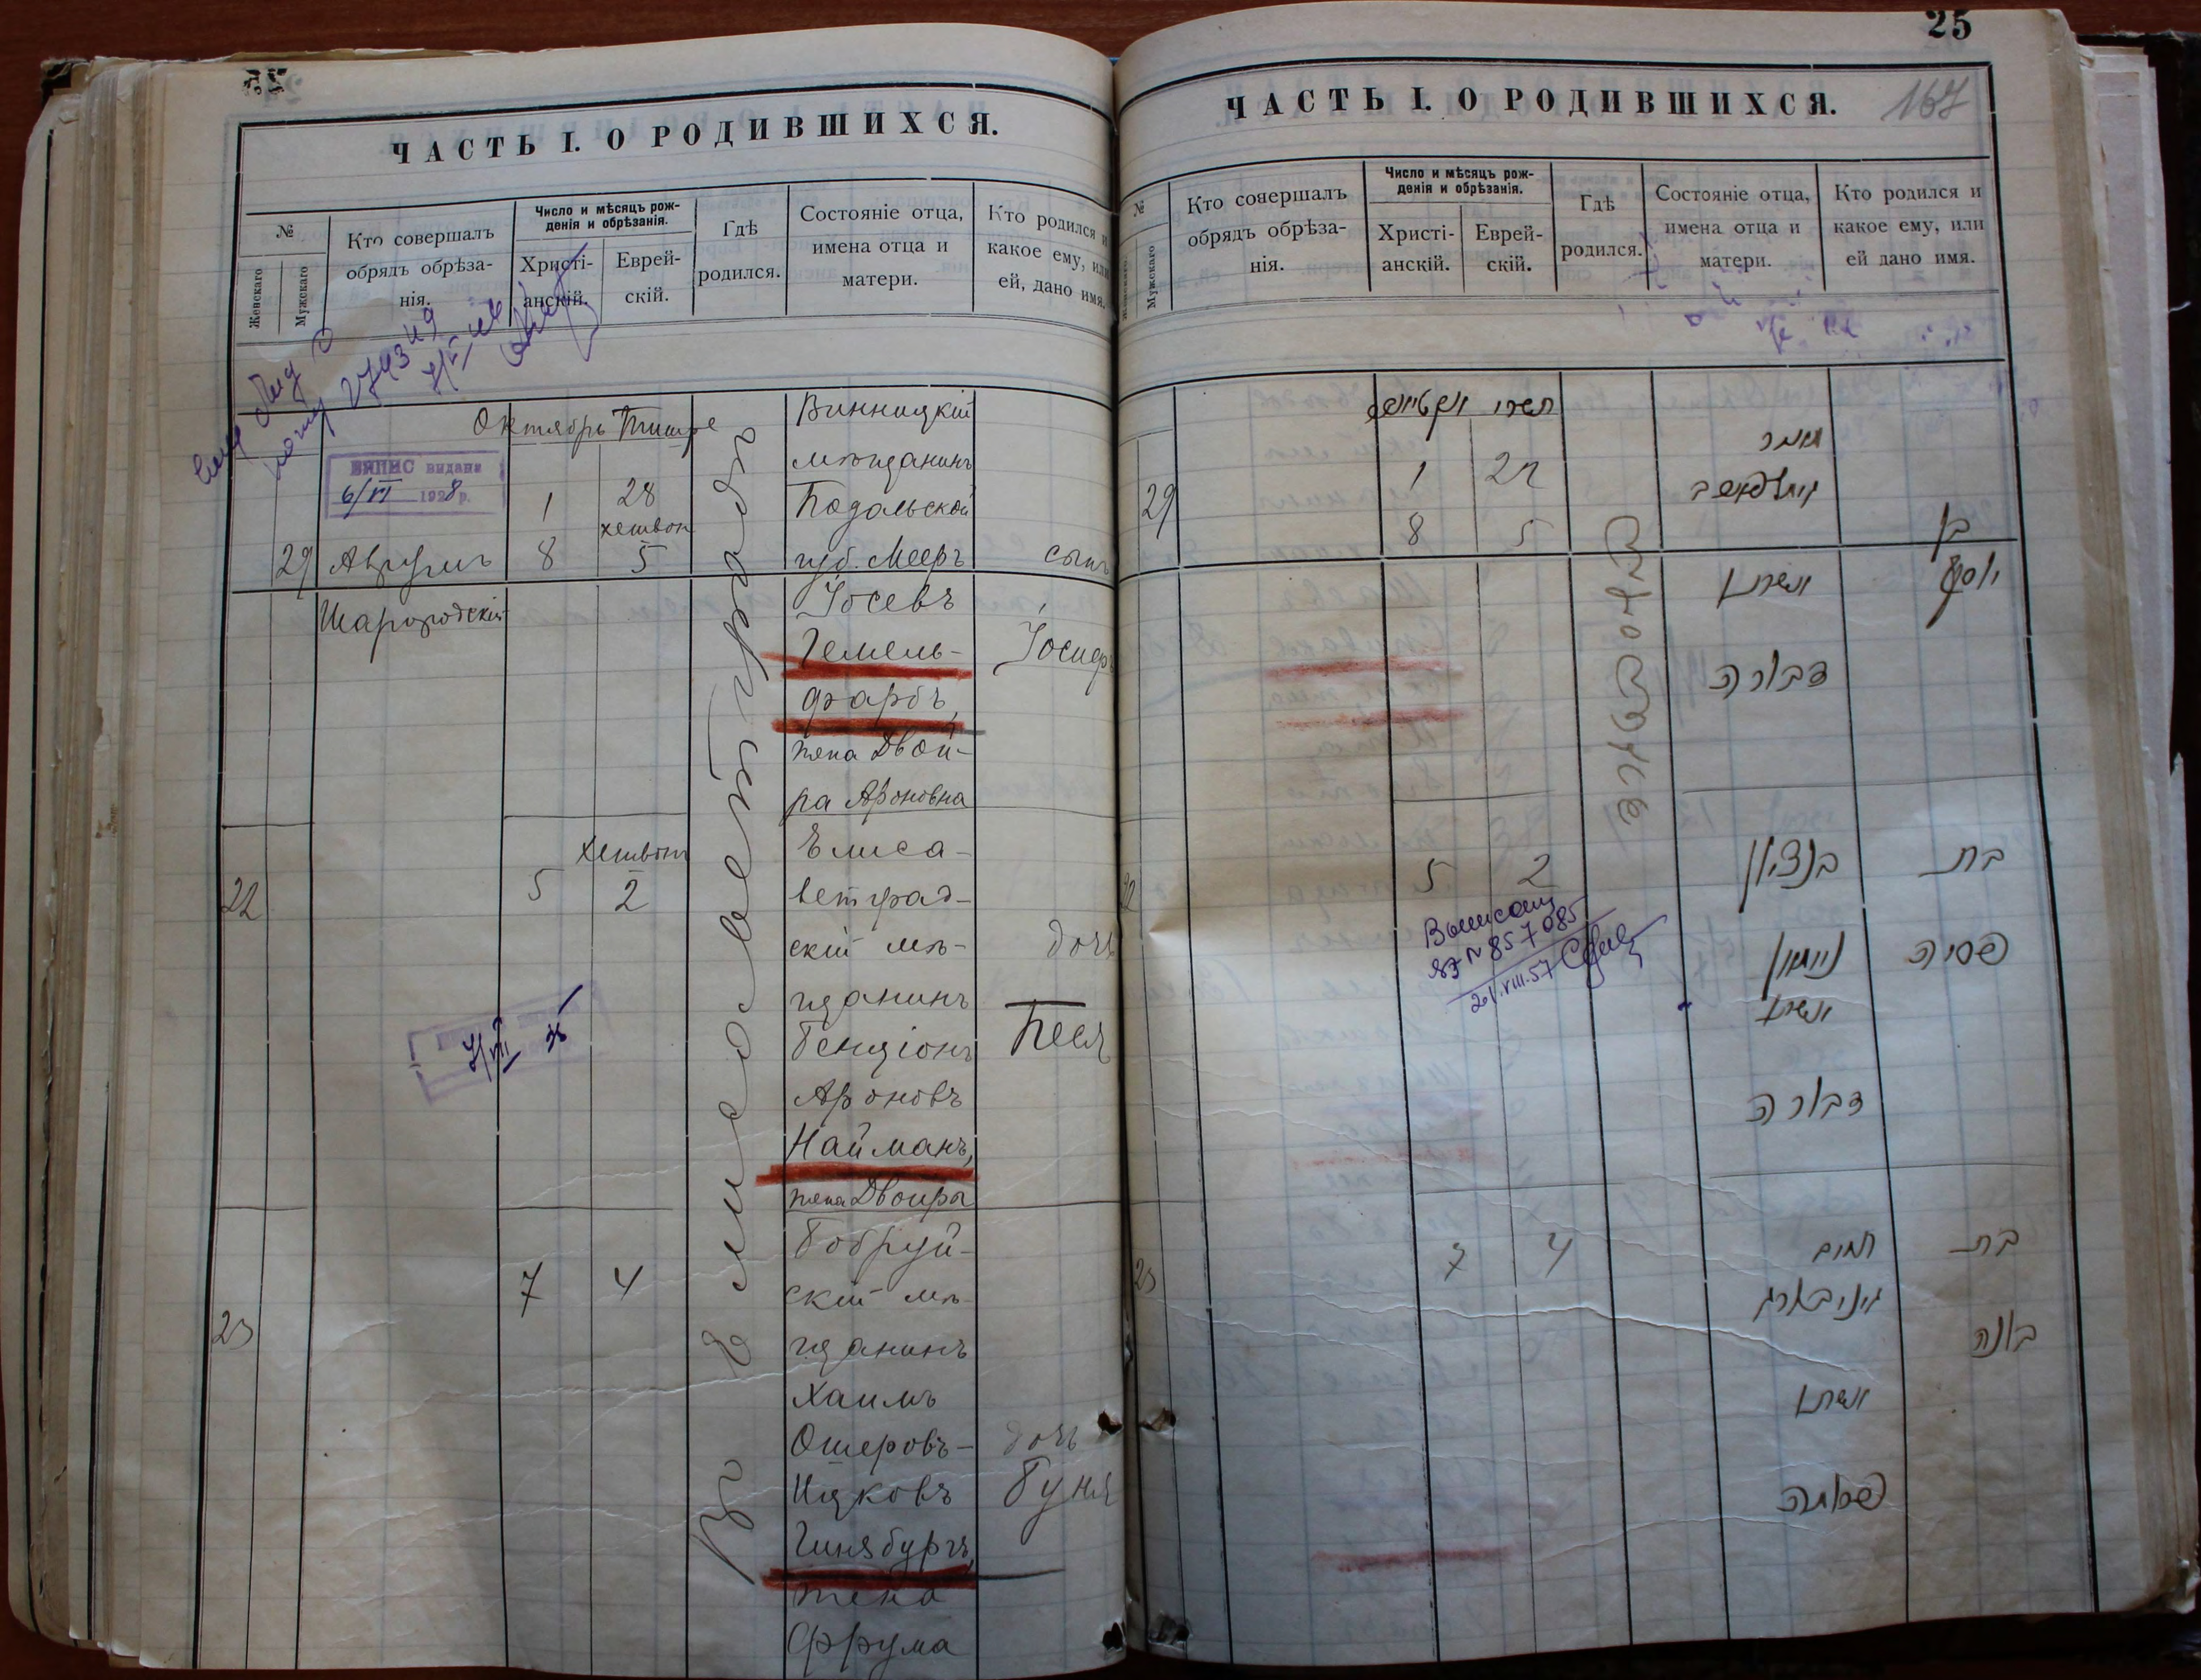 25
ЧАСТЬ I. О РОДИВШИХСЯ.
№
Женскаго
Мужскаго
Кто совершалъ
обрядъ обрѣза-
нія.
Число и мѣсяцъ рож-
денія и обрѣзанія.
Христі-
анскій.
Еврей-
скій.
Гдѣ
родился.
Состояніе отца,
имена отца и
матери.
Кто родился и
какое ему, или
ей, дано имя.
2743
Октябрь Тишре
ВИПИС видана
6/VI 1928 р.
29
Аврумъ
Шарогродскій
1
8
28
хешвон
5
Въ Елисаветградѣ
Винницкій
мѣщанинъ
Подольской
губ. Мееръ
Іосевъ
Гемель-
фарбъ,
жена Двой-
ра Ароновна
сынъ
Іосифъ
22
5
Хешвон
2
Елиса-
ветград-
скій мѣ-
щанинъ
Бенціонъ
Ароновъ
Найманъ,
жена Двойра
дочь
Песя
23
7
4
Бобруй-
скій мѣ-
щанинъ
Хаимъ
Ошеровъ-
Ицковъ
Гинзбургъ,
жена
Фрума
дочь
Буня
ЧАСТЬ I. О РОДИВШИХСЯ.
167
№
Мужскаго
Кто совершалъ
обрядъ обрѣза-
нія.
Число и мѣсяцъ рож-
денія и обрѣзанія.
Христі-
анскій.
Еврей-
скій.
Гдѣ
родился.
Состояніе отца,
имена отца и
матери.
Кто родился и
какое ему, или
ей дано имя.
תשרי
29
1
8
5
מאיר
ואשתו
דבורה
בן
יוסף
22
5
2
בנציון
ניימאן
ואשתו
דבורה
בת
פסיה
857085
21.VIII.57
23
7
4
חיים
גינזבורג
ואשתו
פרומה
בת
בוניה